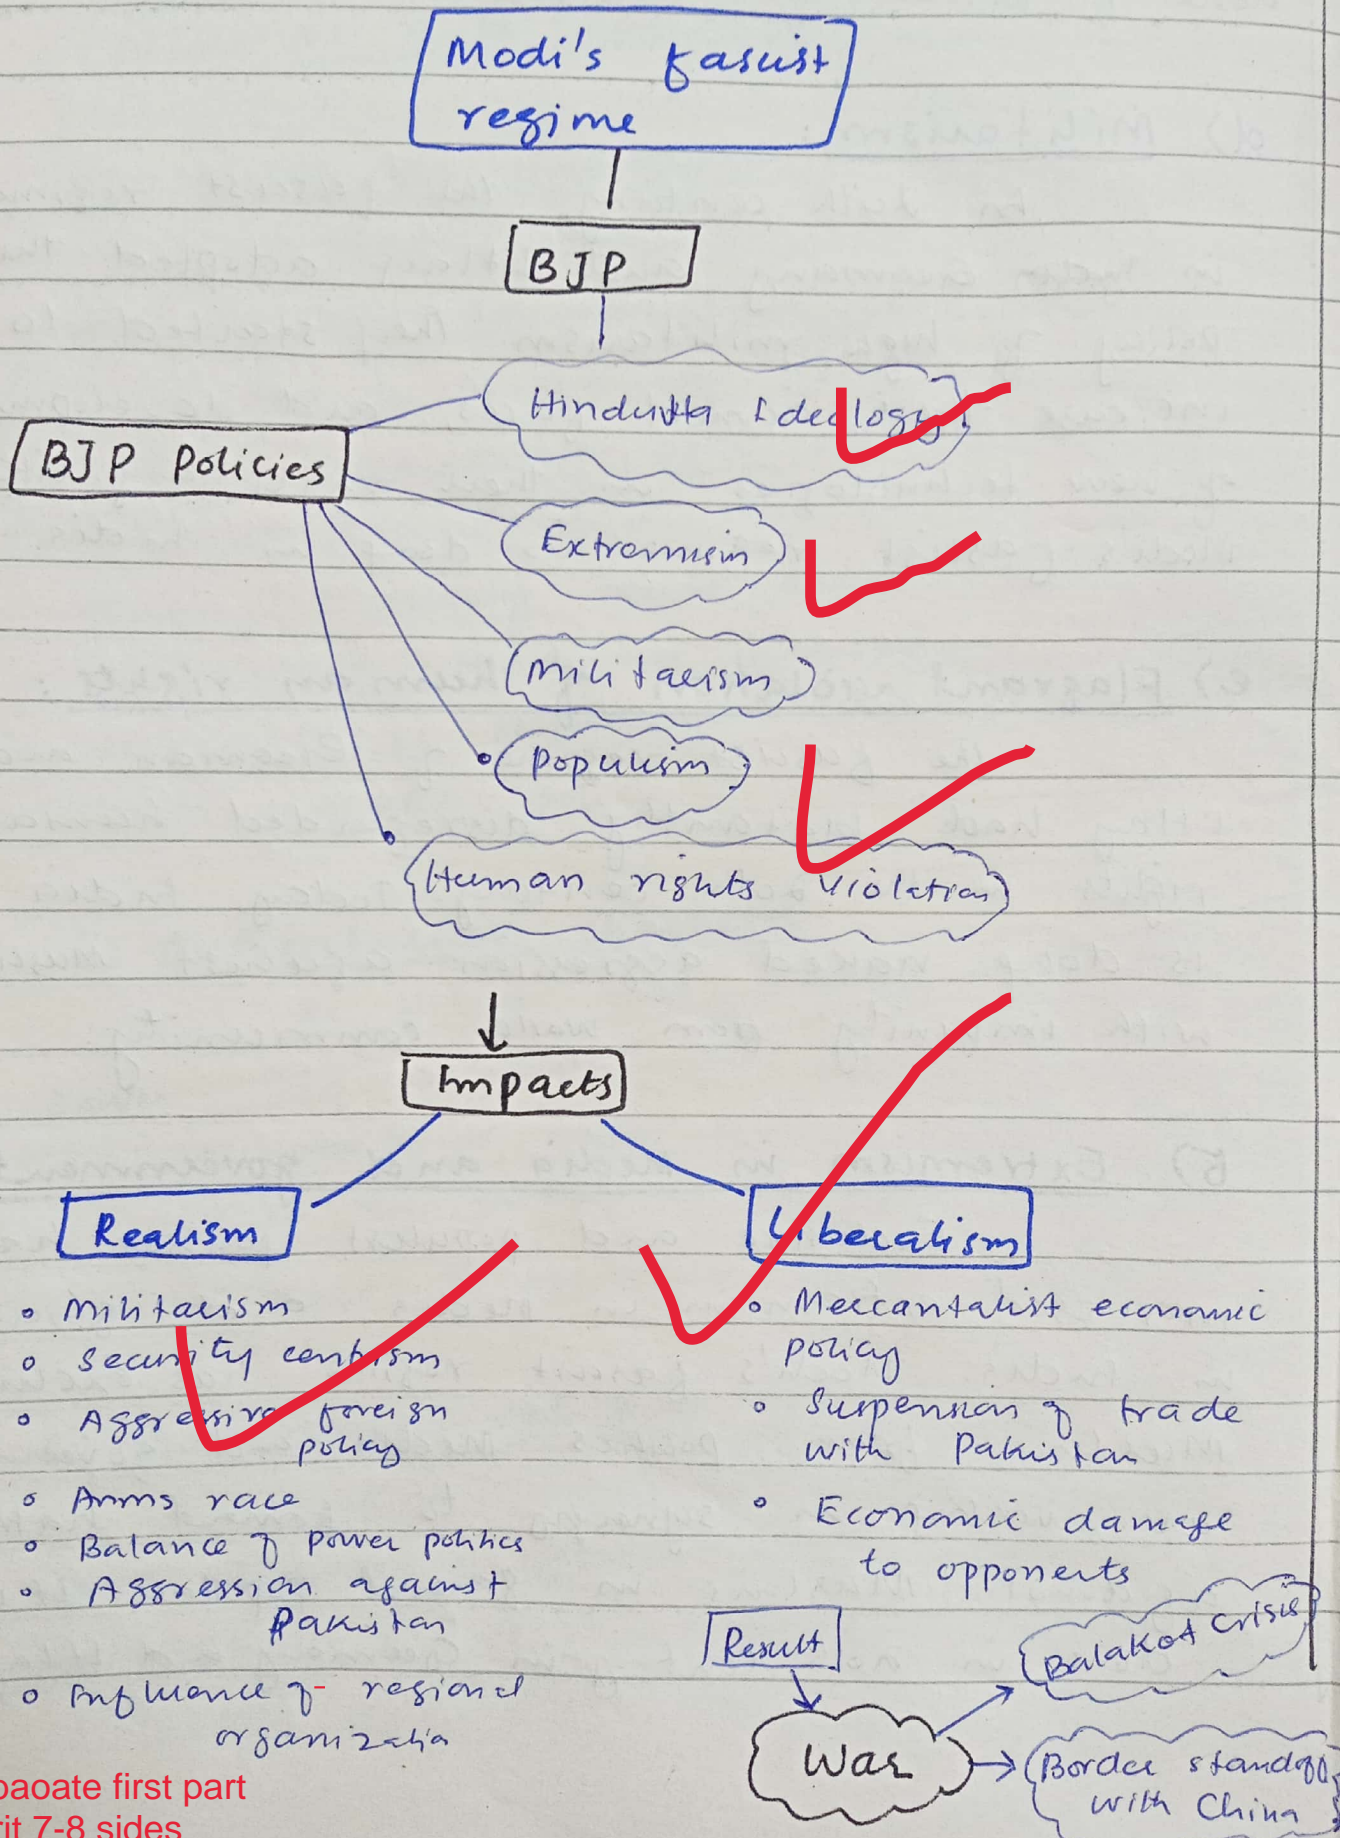 Modi's fascist
regime
BJP
Hindutta Idealogy
BJP Policies
Extremism
Militarism
Populism
Human rights violation
Impacts
Realism
Liberalism
• Militarism
• Security centrism
• Aggressive foreign
policy
• Arms race
• Balance of power politics
• Aggression against
Pakistan
• Influence of regional
organization
• Mercantalist economic
policy
• Suspension of trade
with Pakistan
• Economic damage
to opponents
Result
Balakot Crisis
War
Border standoff
with China
first part
7-8 sides